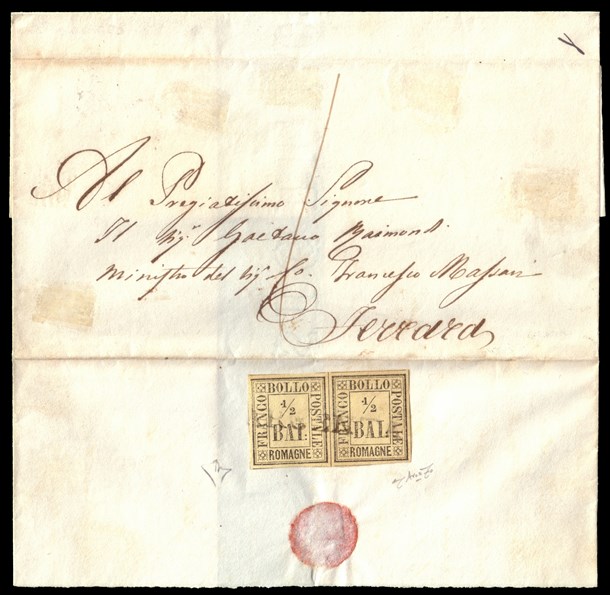 Al Pregiatissimo Signore
Il Sig. Gaetano Raimondi
Ministro del Sig. Co. Francesco Massari
Ferrara
FRANCO BOLLO POSTALE
1/2
BAI.
ROMAGNE
FRANCO BOLLO POSTALE
1/2
BAI.
ROMAGNE